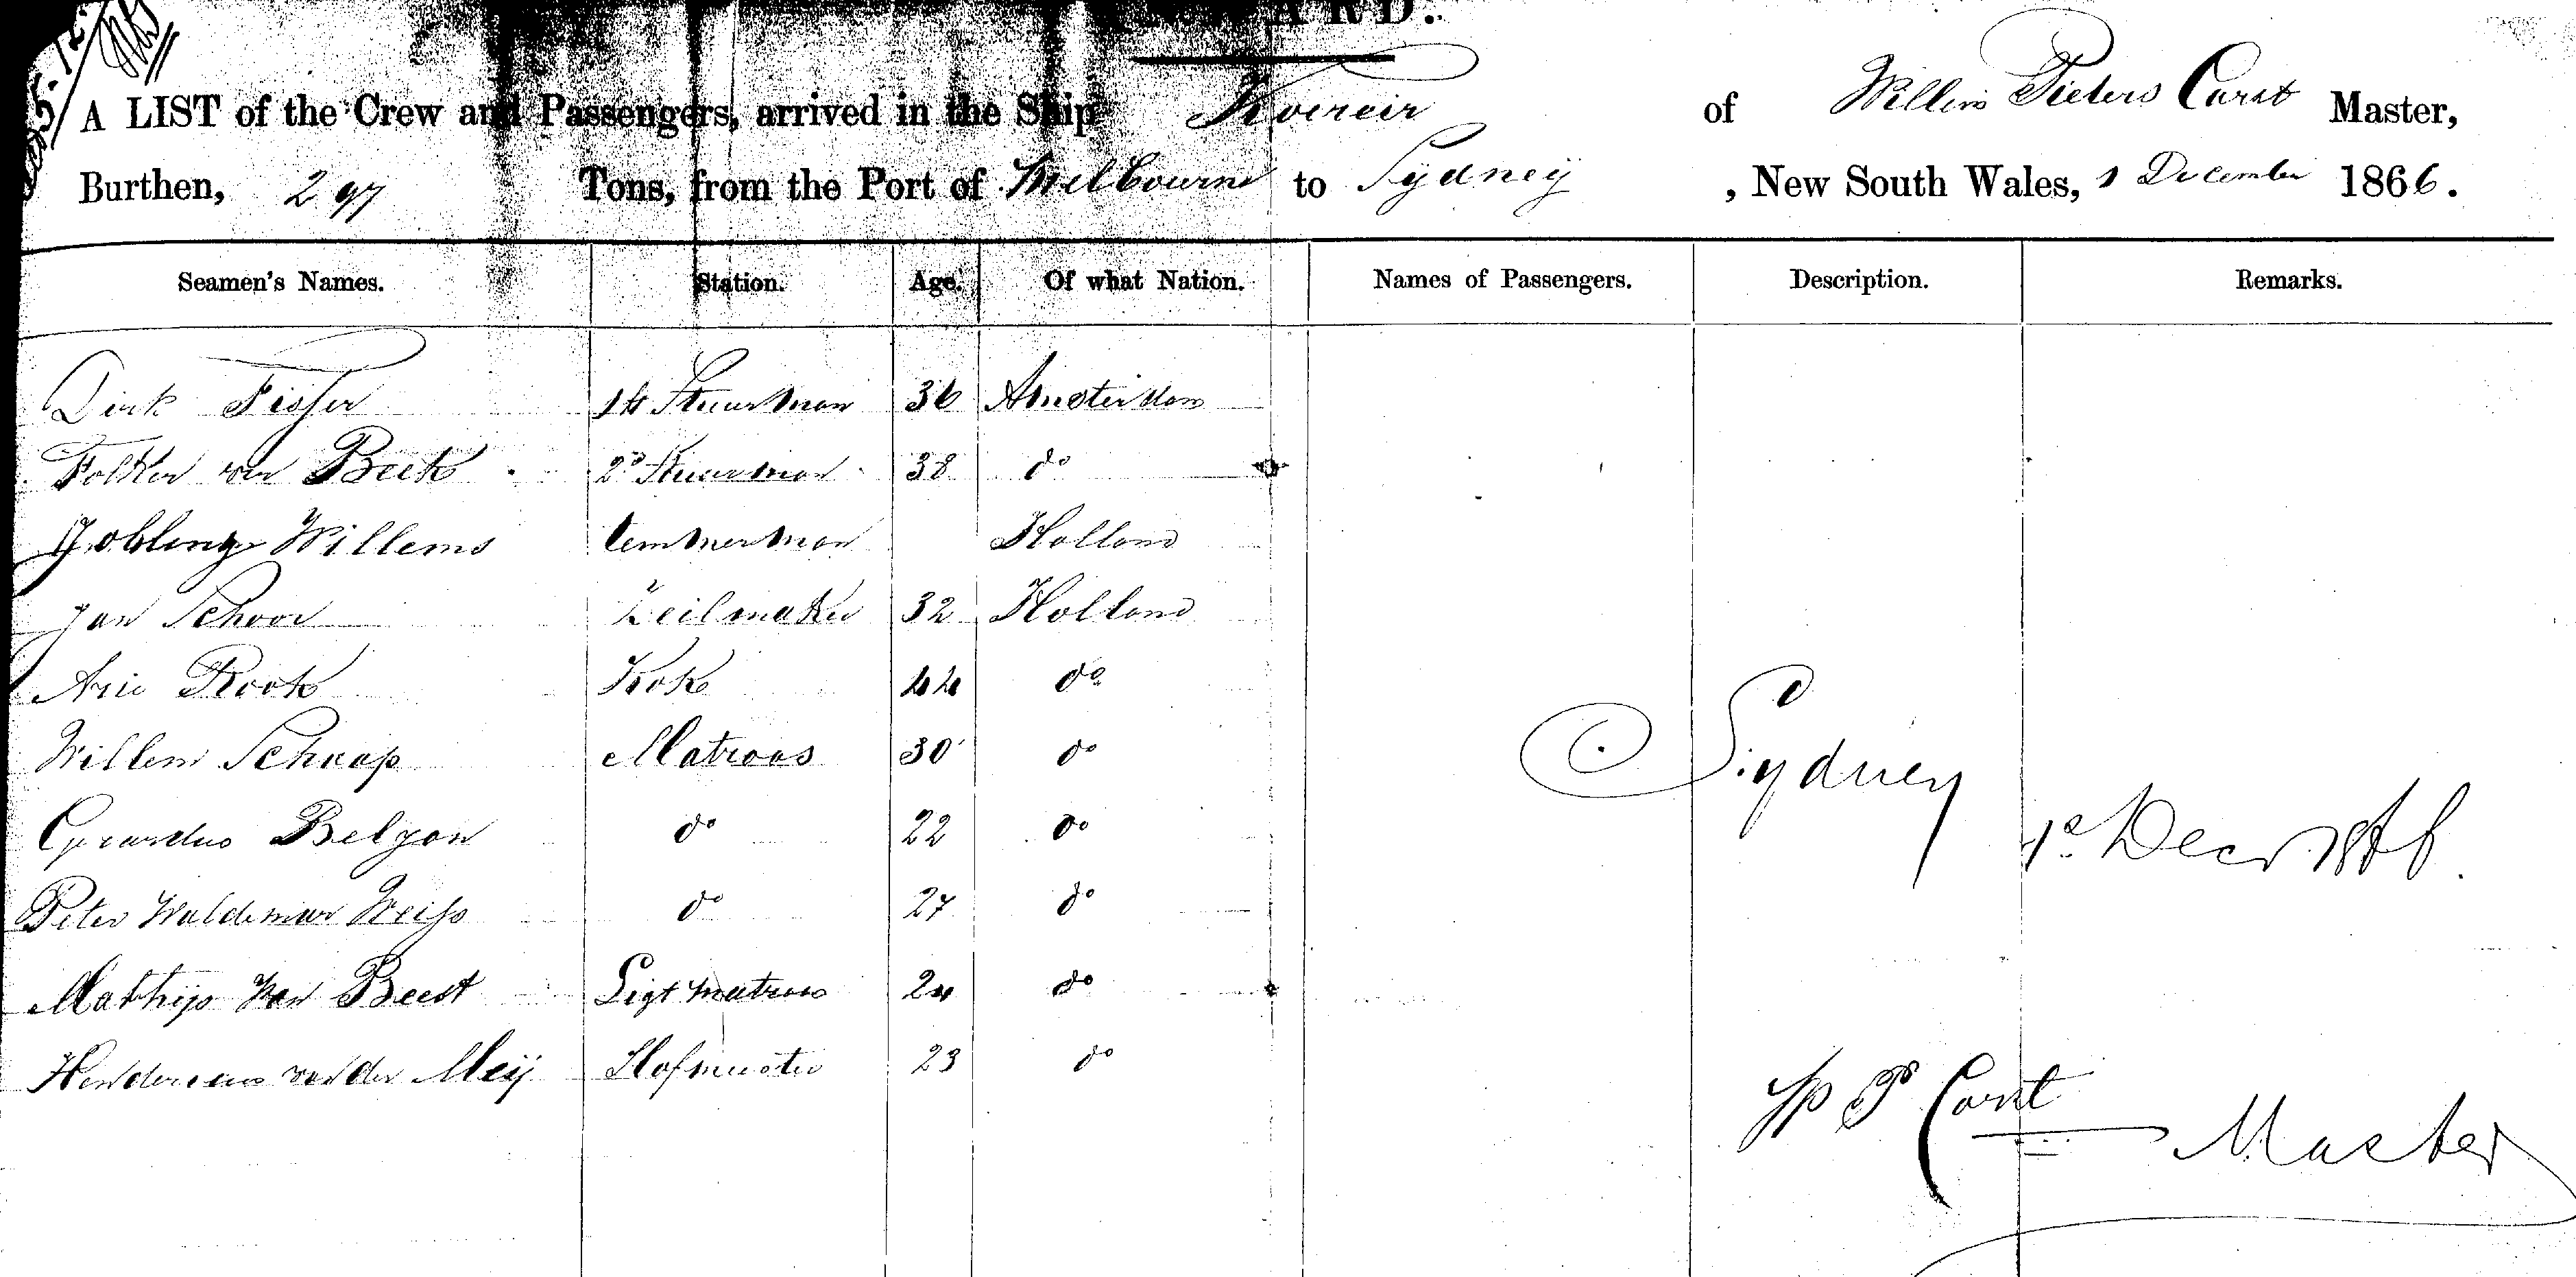 A LIST of the Crew and Passengers, arrived in the Ship Koerier of Willem Pieters Carst Master,
Burthen, 297 Tons, from the Port of Melbourne to Sydney, New South Wales, 1 December 1866.
Seamen's Names. Station. Age. Of what Nation. Names of Passengers. Description. Remarks.
Dirk Fisser 1st Stuurman 36 Amsterdam
Folker van Beek 2d Stuurman 38 do
Willems temmerman Holland
Jan Schoor Zeilmaker 32 Holland
Arie Rook Kok 44 do
Willem Schaap Matroos 30 do
Gerardus Beljon do 22 do
Peter Waldemar Weiss do 27 do
Matthijs van Beest Ligt matroos 24 do
van der Meij Hofmeester 23 do
Sydney
1e Decr 1866.
W P Carst
Master